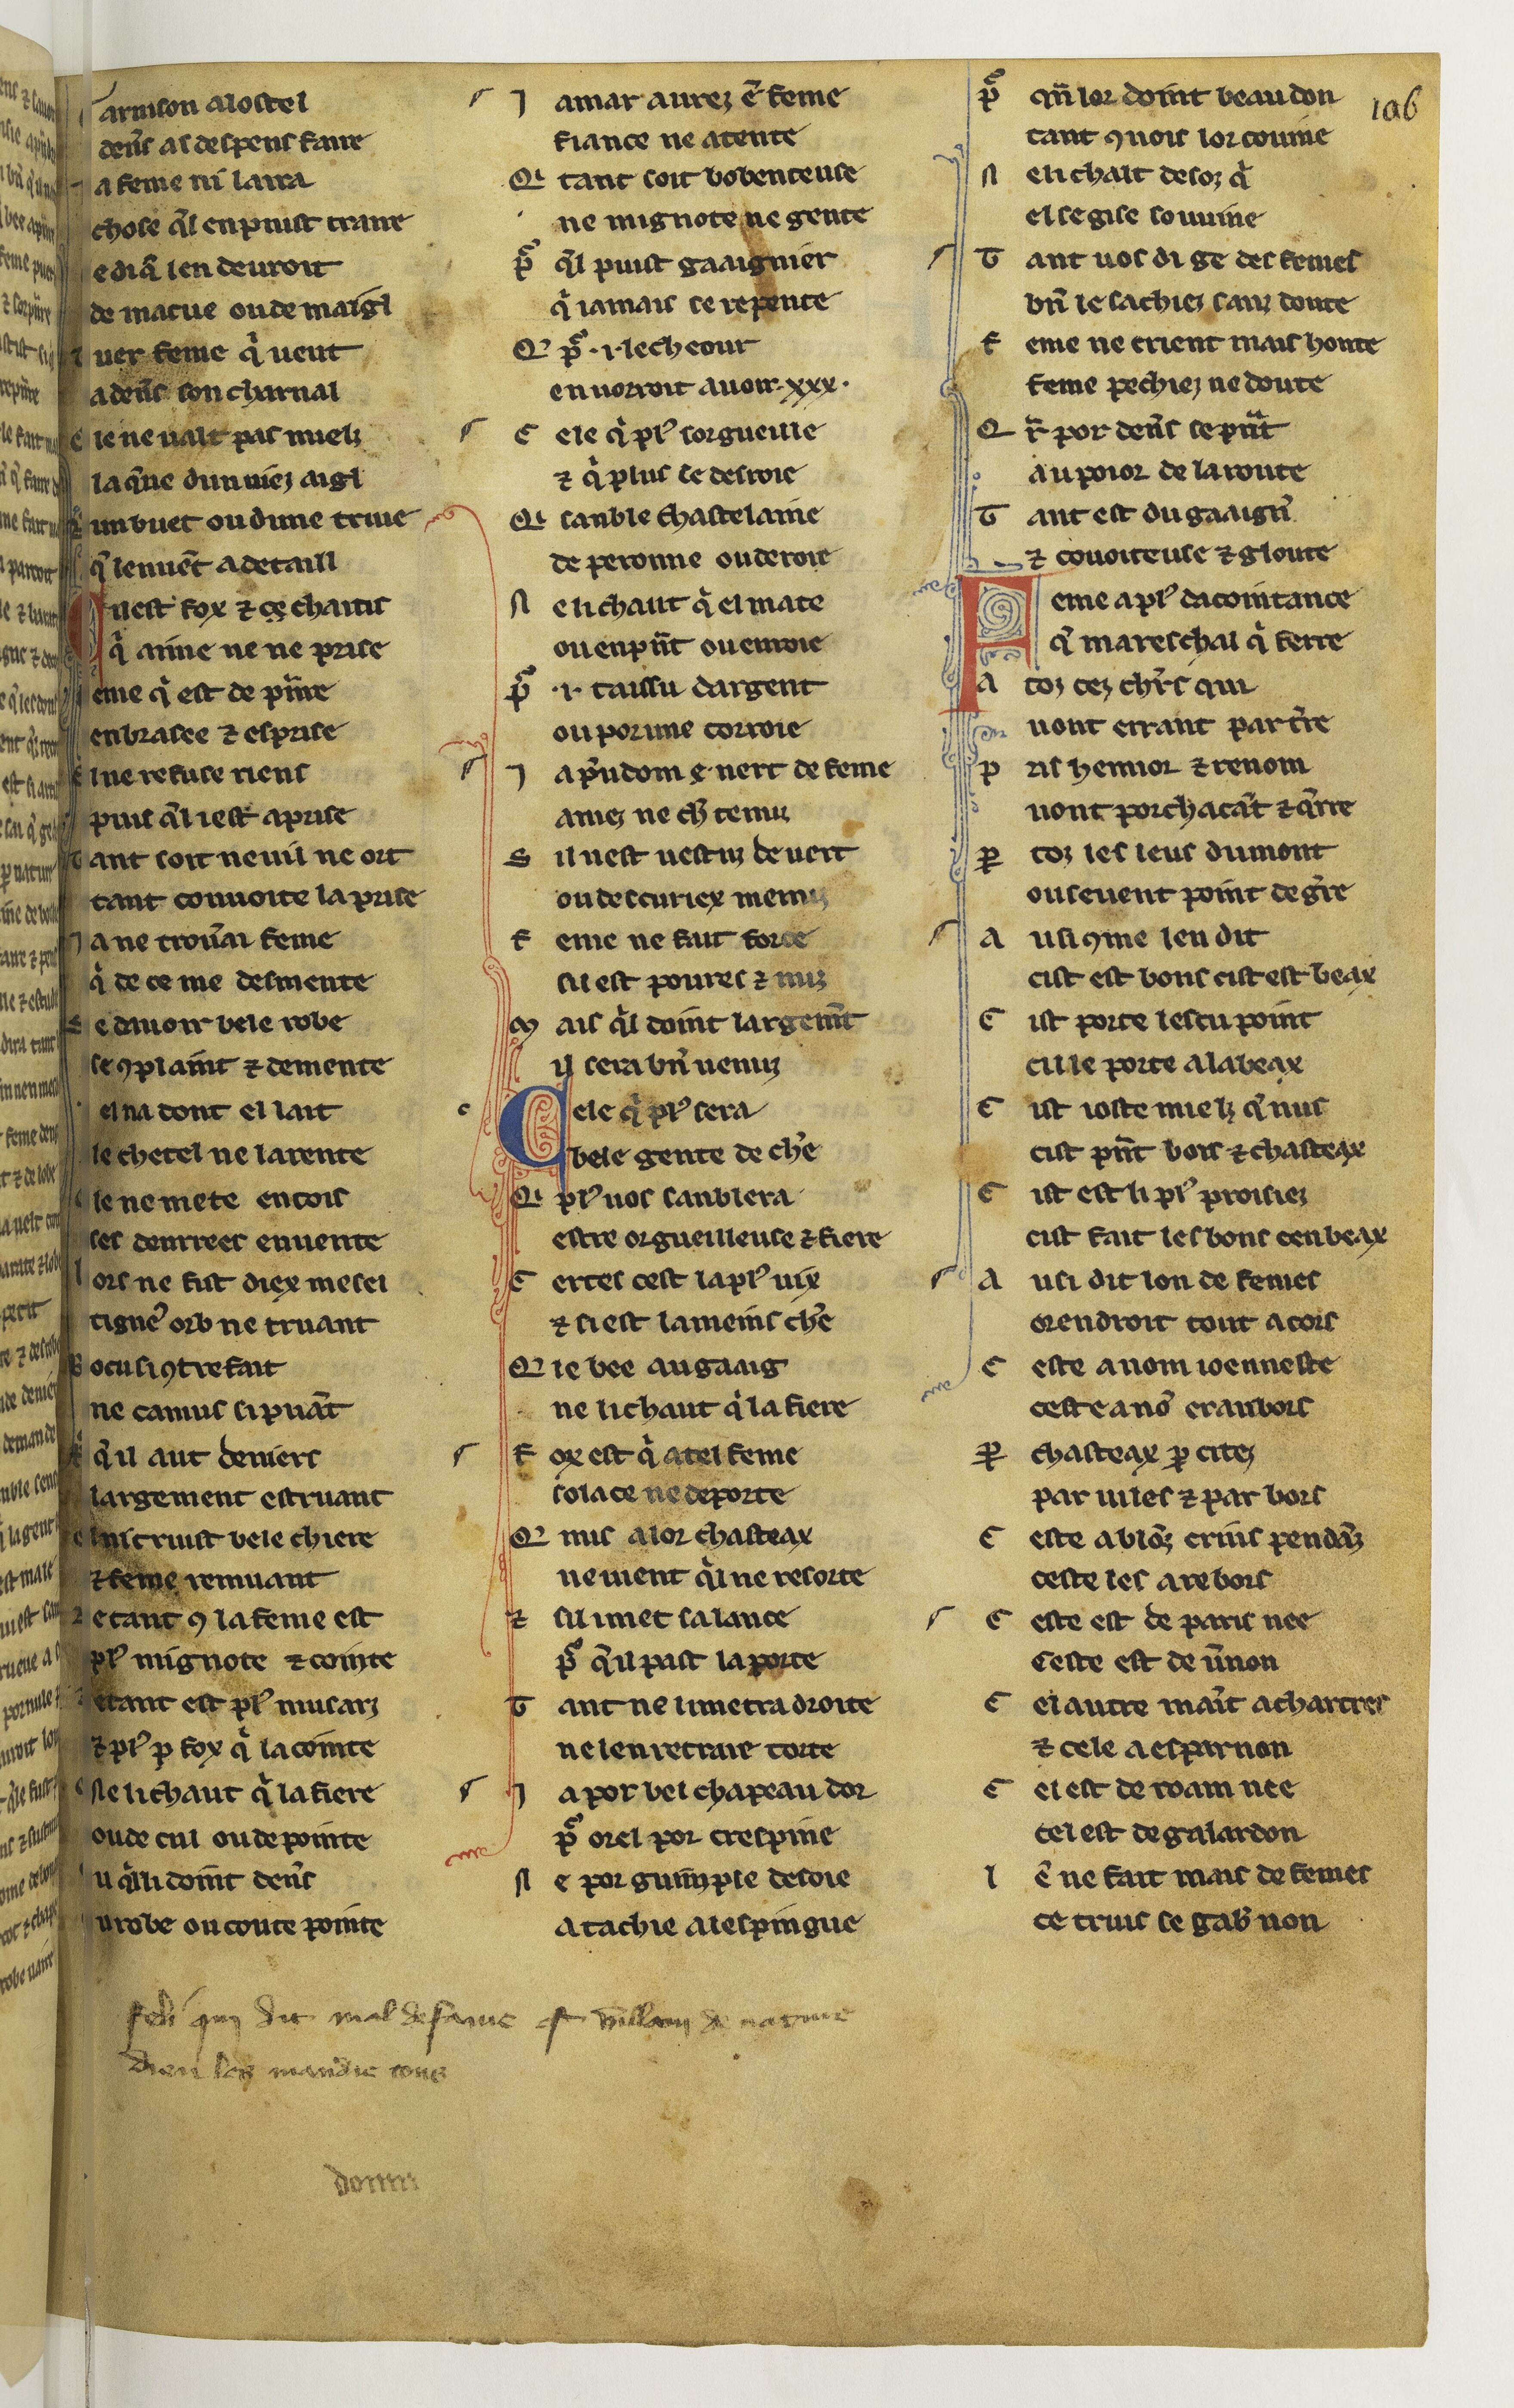 arnison a lostel
den̄s as despens faire
Ja feme ni laira
chose q̄l en puist traire
e di q̄ len deuroit
de macue ou de maigl
uer feme q̇ uent
a den̄s son charnal
E le ne ualt pas mielz
la q̄ne dun uiez aigl
un buef ou dune truie
q̄ len uēt a detaill
uest fox ⁊ ce chaitis
q̇ aime ne ne prise
eme q̇ est de pīne
enbrasee ⁊ esprise
l ne refuse riens
puis q̄l i est aprise
T ant soit ne uil ne ort
tant conuoite la prise
J a ne trou̓ai feme
q̇ de ce me desmente
S e dauoir bele robe
se ꝯplaint ⁊ demente
el na dont el lait
le chetel ne la rente
le ne mete encois
ses denrrees en uente
l ors ne fust diex mesel
tigne᷒ orb ne truant
B ocu si ꝯtrefait
ne camus si puāt
q̄ il aut deniers
largement estruant
l nis truist bele chiere
⁊ feme remuant
⁊ e tant ꝯ la feme est
pl᷒ mignote ⁊ cointe
⁊ e tant est pl᷒ musarz
⁊ pl᷒ p̱ fox q̇ la cointe
Ne li chaut q̇ la fiere
ou de cul ou de pointe
u q̄ li doint den̄s
u robe ou coute pointe
J amar aurez ē feme
fiance ne atente
Qi tant soit bobenceuse
ne mignote ne gente
p̄ q̄l puist gaaignier
q̇ iamais se repente
Q̓ p̄ ·i· lecheour
en uorroit auoir ·xxx·
C ele q̇ pl᷒ sorgueille
⁊ q̇ plus se desroie
Qi sanble chastelaine
de peronne ou de roie
N e li chaut q̇ el mate
ou enpn̄t ou enuoie
p̄ ·i· taissu dargent
ou por une corroie
J a p̓udom ꝯ nert de feme
amez ne ch̓ tenuz
S il nest uestuz de uert
ou descuriex menuz
F eme ne fait force
sil est poures ⁊ nuz
M ais q̄l doint largem̄t
il sera bn̄ uenuz
Cele q̇ pl᷒ sera
bele gente de ch̓e
Qi pl᷒ uos sanblera
estre orgueilleuse ⁊ fiere
C ertes cest la pl᷒ uix
⁊ si est la meins ch̓e
Q̓ le bee au gaaig
ne li chaut q̇ la fiere
F ox est q̇ a tel feme
solace ne deporte
Q̓ nus a lor chasteax
ne uient q̇l ne resorte
⁊ sil i met sa lance
p̄ q̄ il past la porte
T ant ne li metra droite
ne len retraie torte
J a por bel chapeau dor
p̄ orel por crespine
N e por guimple de soie
atachie a lespingue
p̄ qn̄ lor doint beau don
tant ꝯ nois lor couine
N e li chalt desoz q̇
el se gise souuine
T ant uos di ge des femes
bn̄ le sachiez sanz doute
F eme ne crient mais honte
feme pechiez ne doute
Q r̄ por den̄s se pn̄t
au poior de la route
T ant est du gaaign̄
⁊ couoiteuse ⁊ gloute
Feme a pl᷒ dacointance
q̄ mareschal q̇ ferre
A toz cez ch̓rs qui
uont errant par t̓re
p ris hennor ⁊ renom
uont porchacāt ⁊ q̄rre
p̱ toz les leus du mont
ou seuent point de g̓re
A usi ꝯme len dit
cist est bons cist est beax
C ist porte lescu point
cil le porte a labeax
C ist ioste mielz q̄ nus
cist pn̄t bors ⁊ chasteax
C ist est li pl᷒ proisiez
cist fait les bons cenbeax
A usi dit lon de femes
orendroit tout a cors
C este a nom ioenneste
ceste a nō eranbors
p̱ chasteax p̱ citez
par uiles ⁊ par bors
C este a blōz crins pendāz
ceste les a rebors
C este est de paris nee
Ceste est de u̓non
C el autre maīt a chartres
⁊ cele a esparnon
C el est de roam nee
cel est de galardon
l ē ne fait mais de femes
ce truis se gab̓ non
106
Feli qui dit mal de fame est villain de nature
dieu les maudie tous